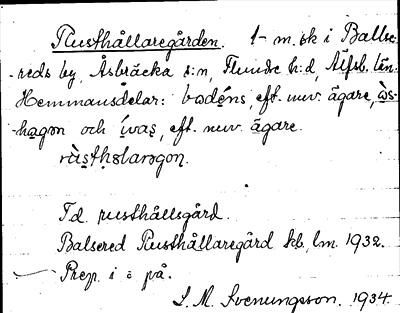 Rusthållaregården. 1 m. sk i Ballse-
reds by, Åsbräcka s:n, Flundre h:d, Älfsb. län.
Hemmansdelar: bodéns, eft. nuv. ägare,
och ívas, eft. nuv. ägare.
F.d. rusthållsgård.
Balsered Rusthållaregård kb, lm. 1932.
Prep. i o på.
S. M. Svenungsson. 1934.